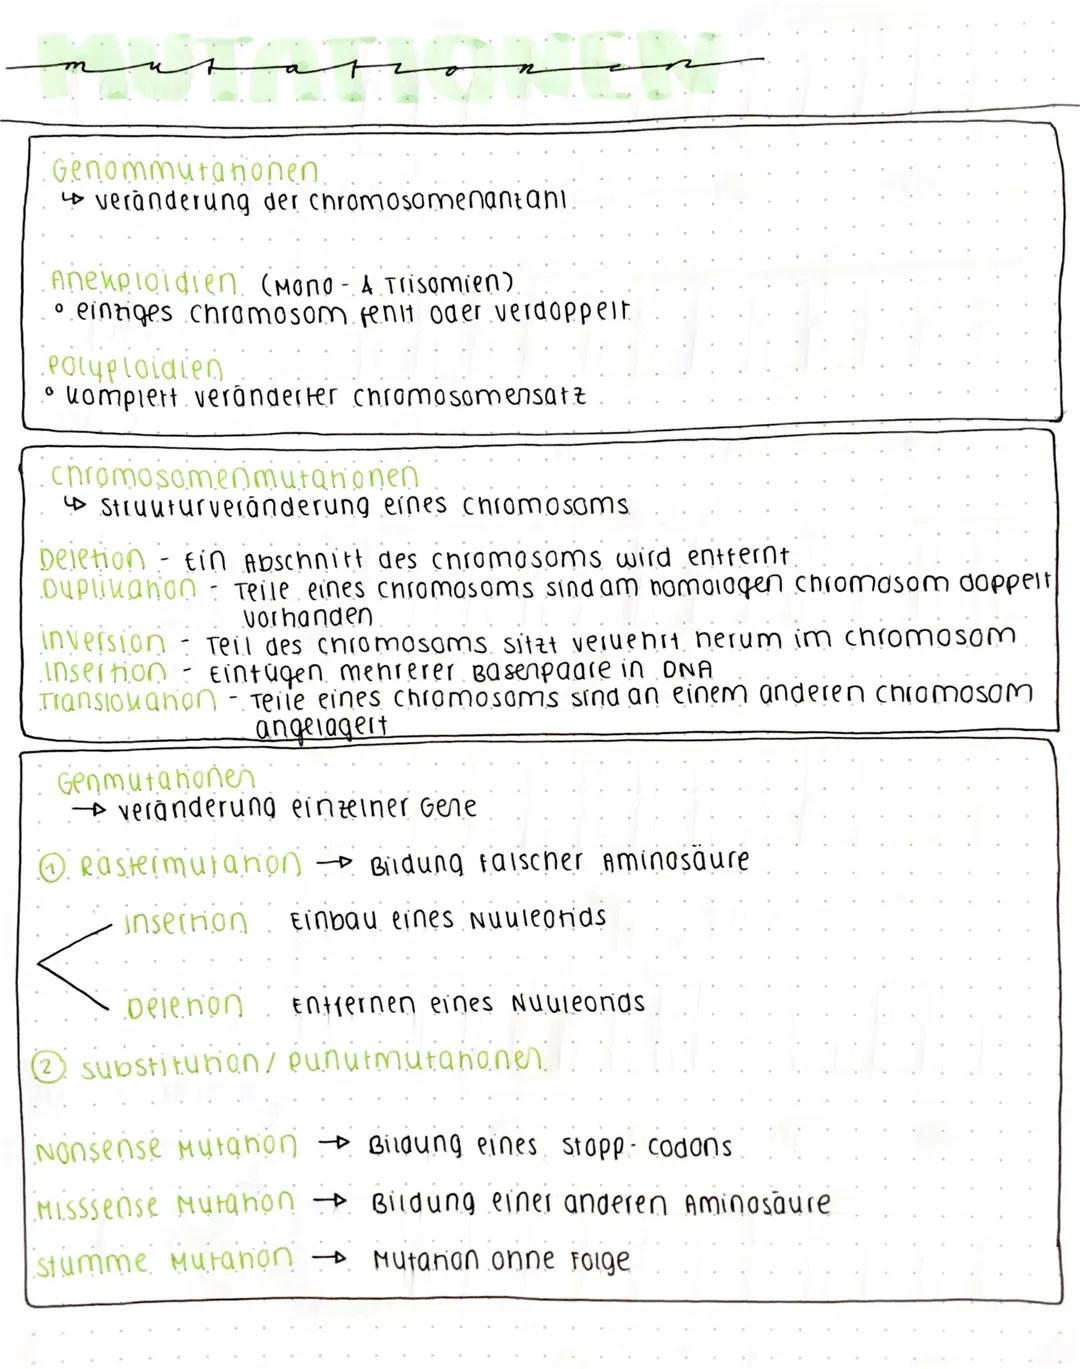 MUTATIONEN
mutationen
Genommutationen
↳ Veränderung der Chromosomenanzahl
Aneuploidien (Mono- & Trisomien)
° einziges Chromosom fehlt oder verdoppelt
Polyploidien
° komplett veränderter Chromosomensatz
Chromosomenmutationen
↳ Strukturveränderung eines Chromosoms
Deletion - Ein Abschnitt des Chromosoms wird entfernt
Duplikation - Teile eines Chromosoms sind am homologen Chromosom doppelt
vorhanden
Inversion - Teil des Chromosoms sitzt verkehrt herum im Chromosom
Insertion - Einfügen mehrerer Basenpaare in DNA
Translokation - Teile eines Chromosoms sind an einem anderen Chromosom
angelagert
Genmutationen
→ Veränderung einzelner Gene
① Rastermutation → Bildung falscher Aminosäure
Insertion Einbau eines Nukleotids
Deletion Entfernen eines Nukleotids
② Substitution / Punktmutationen
Nonsense Mutation → Bildung eines Stopp-Codons
Misssense Mutation → Bildung einer anderen Aminosäure
Stumme Mutation → Mutation ohne Folge